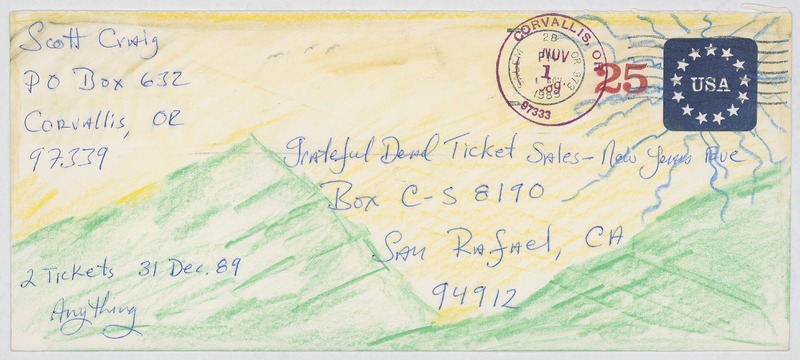 Scott Craig
PO Box 632
Corvallis, OR
97339
CORVALLIS, OR
NOV
1
1989
97333
25
USA
Grateful Dead Ticket Sales - New Years Eve
Box C-S 8190
San Rafael, CA
94912
2 Tickets 31 Dec. 89
Anything